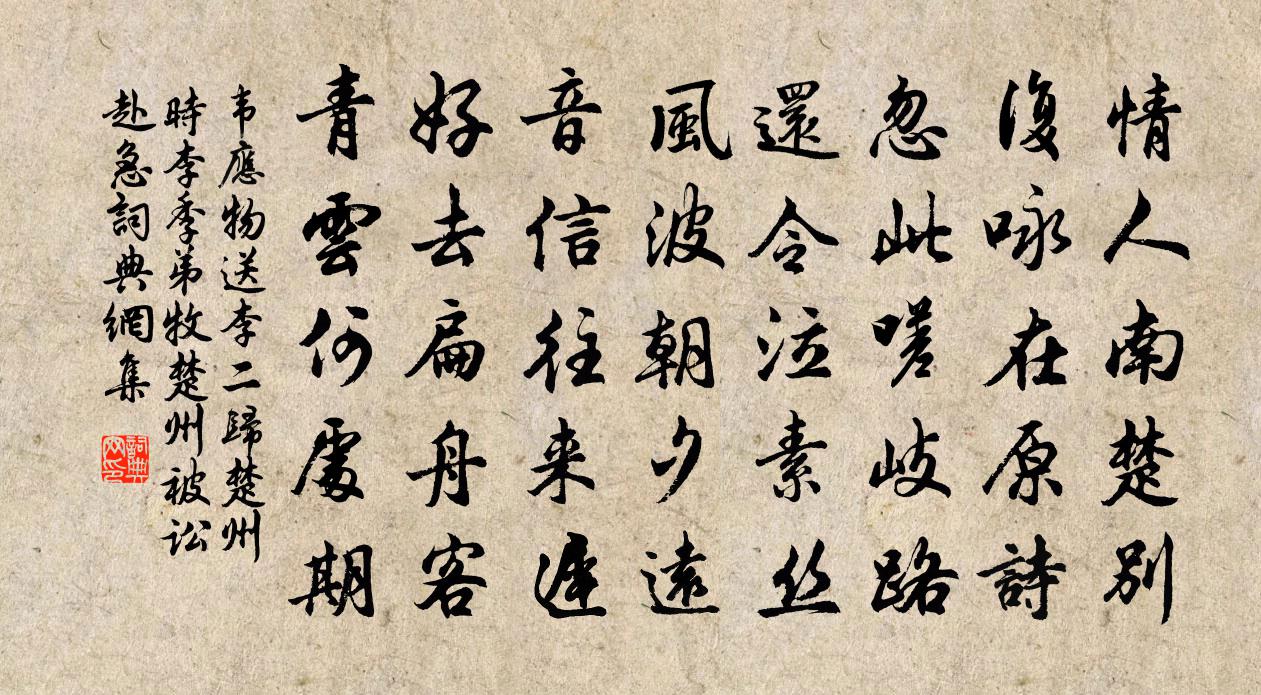 情人南楚別
復咏在原詩
忽此嗟岐路
還令泣素丝
風波朝夕遠
音信往来遲
好去扁舟客
青雲何處期
韦應物送李二歸楚州
時李季弟牧楚州被訟
赴急詞典網集
詞典
网印